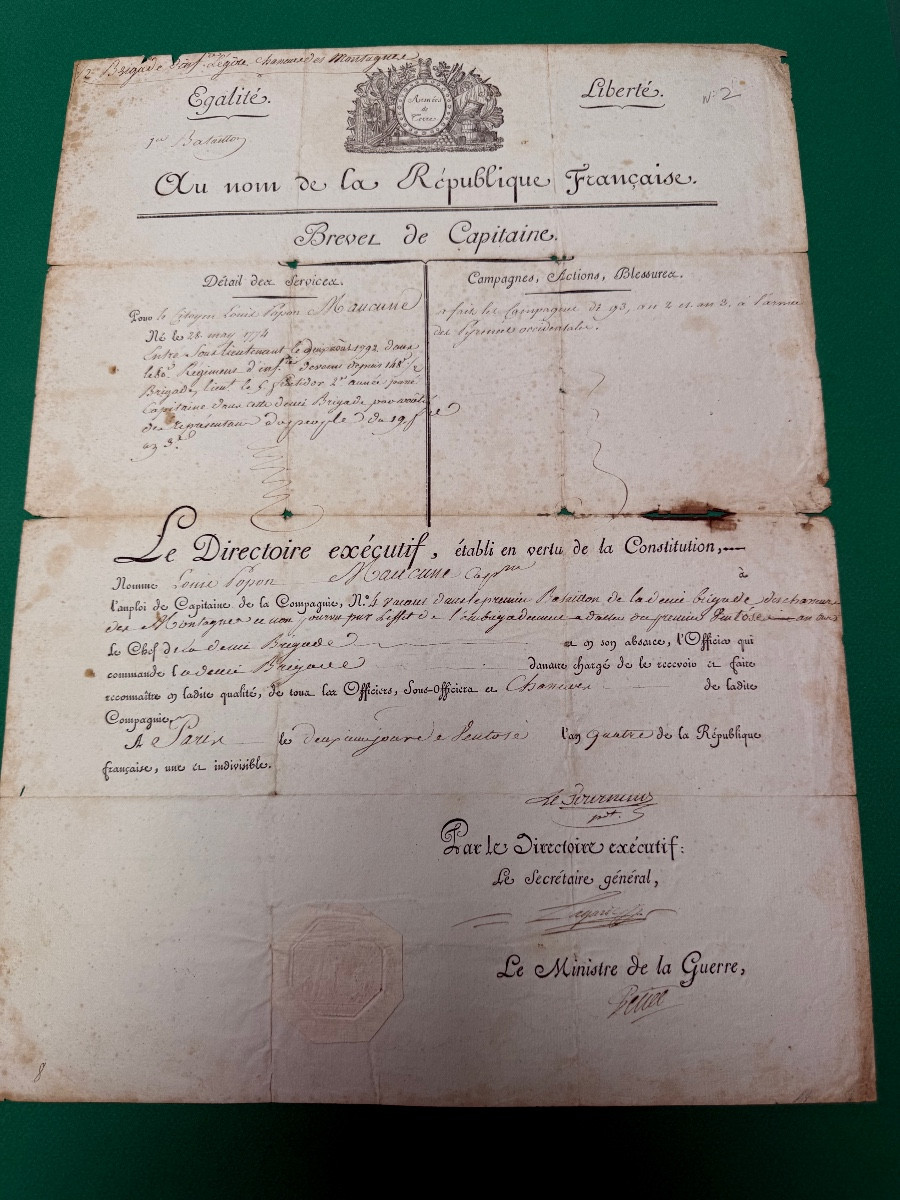 2e Brigade d'infrie Légère Chasseurs des Montagnes
Egalité.
Armées
de
Terre
Liberté.
N° 2
1er Bataillon
Au nom de la République Française.
Brevet de Capitaine.
Détail des Services.
Campagnes, Actions, Blessures.
Pour le Citoyen Louis Popon Maucune
Né le 28 may 1774
Entré Sous lieutenant le août 1792 dans
le 80e Régiment d'infrie devenu depuis 148e 1/2
Brigade, lieut le 2e année
Capitaine dans cette demi Brigade par
des représentans du peuple du 19
an 3e
a fait les Campagnes de 93, an 2 et an 3. à l'armée
des Pyrenées occidentales.
Le Directoire exécutif, établi en vertu de la Constitution,
Nomme Louis Popon Maucune Capne à
l'emploi de Capitaine de la Compagnie, N° 4 vacant dans le premier Bataillon de la demi brigade des chasseurs
des Montagnes et non pourvu par l'effet de l'embrigadement à dater du premier Ventôse an
Le Chef de la demi Brigade et en son absence, l'Officier qui
commande la demi Brigade demeure chargé de le recevoir et faire
reconnaître en ladite qualité, de tous les Officiers, Sous-Officiers et Chasseurs de ladite
Compagnie.
A Paris le deuxieme jour de Ventose l'an quatre de la République
française, une et indivisible.
Le Tourneur
pdt.
Par le Directoire exécutif:
Le Secrétaire général,
Lagarde
Le Ministre de la Guerre,
Petiet
8